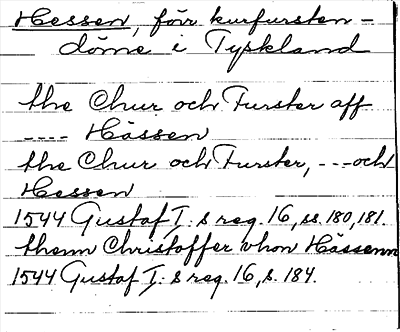 Hessen, förr kurfursten-
döme i Tyskland
the Chur och Furster aff
---- Hässen
the Chur och Furster, ---och
Hessen
1544 Gustaf I:s reg. 16, ss. 180, 181.
thenn Christoffer vhon Hässenn
1544 Gustaf I:s reg. 16, s. 184.